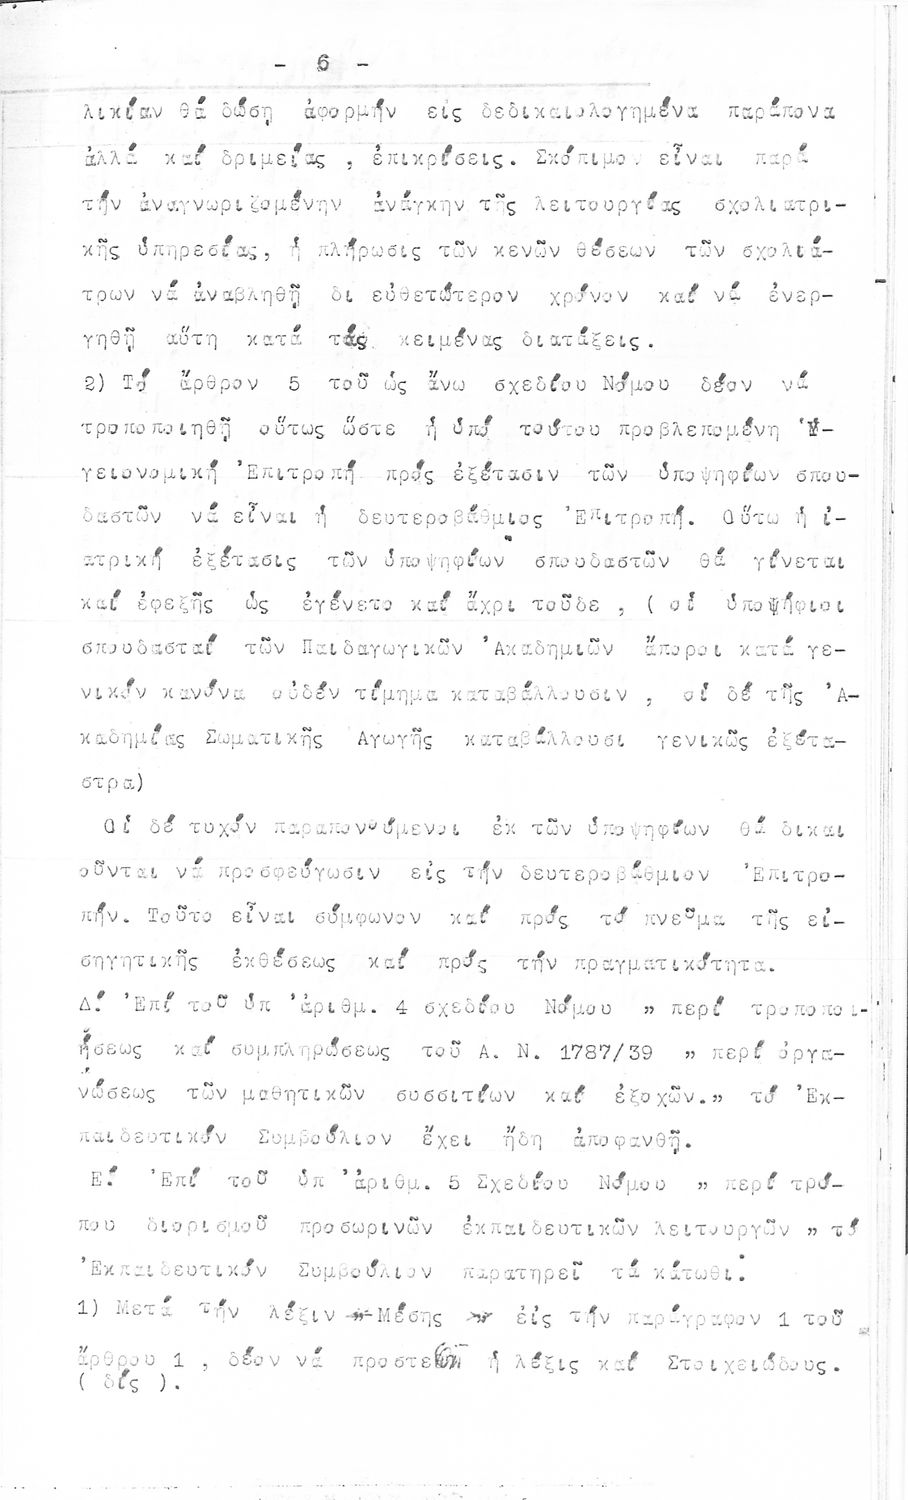 - 6 -
λικίαν θά δώση ἀφορμήν εἰς δεδικαιολογημένα παράπονα
ἀλλά καί δριμείας , ἐπικρίσεις. Σκόπιμον εἶναι παρά
τήν ἀναγνωριζομένην ἀνάγκην τῆς λειτουργίας σχολιατρι-
κῆς ὑπηρεσίας, ἡ πλήρωσις τῶν κενῶν θέσεων τῶν σχολιά-
τρων νά ἀναβληθῇ δι εὐθετώτερον χρόνον καί νά ἐνερ-
γηθῇ αὕτη κατά τάς κειμένας διατάξεις.
2) Τό ἄρθρον 5 τοῦ ὡς ἄνω σχεδίου Νόμου δέον νά
τροποποιηθῇ οὕτως ὥστε ἡ ὑπό τούτου προβλεπομένη Ὑ-
γειονομική Ἐπιτροπή πρός ἐξέτασιν τῶν ὑποψηφίων σπου-
δαστῶν νά εἶναι ἡ δευτεροβάθμιος Ἐπιτροπή. Οὕτω ἡ ἰ-
ατρική ἐξέτασις τῶν ὑποψηφίων σπουδαστῶν θά γίνεται
καί ἐφεξῆς ὡς ἐγένετο καί ἄχρι τοῦδε , ( οἱ ὑποψήφιοι
σπουδασταί τῶν Παιδαγωγικῶν Ἀκαδημιῶν ἄποροι κατά γε-
νικόν κανόνα οὐδέν τίμημα καταβάλλουσιν , οἱ δέ τῆς Ἀ-
καδημίας Σωματικῆς Αγωγῆς καταβάλλουσι γενικῶς ἐξέτα-
στρα)
Οἱ δέ τυχόν παραπονούμενοι ἐκ τῶν ὑποψηφίων θά δικαι
οῦνται νά προσφεύγωσιν εἰς τήν δευτεροβάθμιον Ἐπιτρο-
πήν. Τοῦτο εἶναι σύμφωνον καί πρός τό πνεῦμα τῆς εἰ-
σηγητικῆς ἐκθέσεως καί πρός τήν πραγματικότητα.
Δ! Ἐπί τοῦ ὑπ ἀριθμ. 4 σχεδίου Νόμου " περί τροποποι-
ήσεως καί συμπληρώσεως τοῦ Α. Ν. 1787/39 " περί ὀργα-
νώσεως τῶν μαθητικῶν συσσιτίων καί ἐξοχῶν." τό Ἐκ-
παιδευτικόν Συμβούλιον ἔχει ἤδη ἀποφανθῇ.
Ε! Ἐπί τοῦ ὑπ ἀριθμ. 5 Σχεδίου Νόμου " περί τρό-
που διορισμοῦ προσωρινῶν ἐκπαιδευτικῶν λειτουργῶν " τό
Ἐκπαιδευτικόν Συμβούλιον παρατηρεῖ τά κάτωθι:
1) Μετά τήν λέξιν "Μέσης " εἰς τήν παράγραφον 1 τοῦ
ἄρθρου 1 , δέον νά προστεθῇ ἡ λέξις καί Στοιχειώδους.
( δίς ).